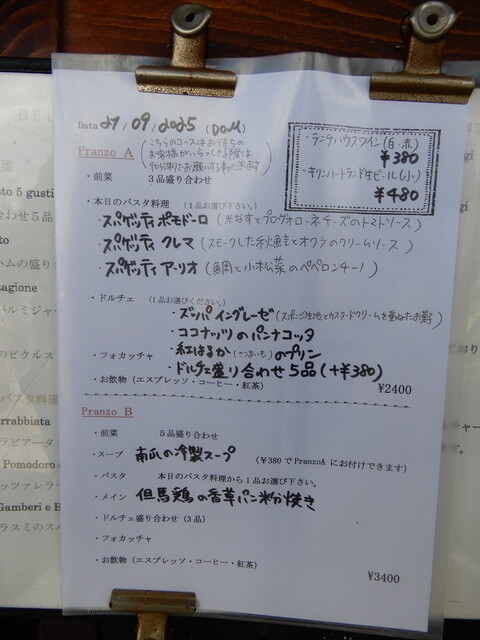 Data 27/09/2025 (DOM)
Pranzo A
こちらのコースはお待ちの
お客様がいらっしゃる際は
90分制でお願いする事が
・前菜 3品盛り合わせ
・ランチハウスワイン(白・赤)
¥380
・キリンハートランド生ビール(小)
¥480
・本日のパスタ料理 (1品お選び下さい。)
・スパゲッティ ポモドーロ (米なすとプロヴォローネチーズのトマトソース)
・スパゲッティ クレマ (スモークした秋鮭とオクラのクリームソース)
・スパゲッティ アーリオ (鯛と小松菜のペペロンチーノ)
・ドルチェ (1品お選びください。)
・ズッパイングレーゼ (スポンジ生地とカスタードクリームを重ねたお菓子)
・ココナッツのパンナコッタ
・紅はるか(さつまいも)のプリン
・フォカッチャ
・ドルチェ盛り合わせ5品(+¥380)
・お飲物 (エスプレッソ・コーヒー・紅茶)
¥2400
Pranzo B
・前菜 5品盛り合わせ
・スープ 南瓜の冷製スープ (¥380でPranzoAにお付けできます)
・パスタ 本日のパスタ料理から1品お選び下さい。
・メイン 但馬鶏の香草パン粉焼き
・ドルチェ盛り合わせ (3品)
・フォカッチャ
・お飲物 (エスプレッソ・コーヒー・紅茶)
¥3400